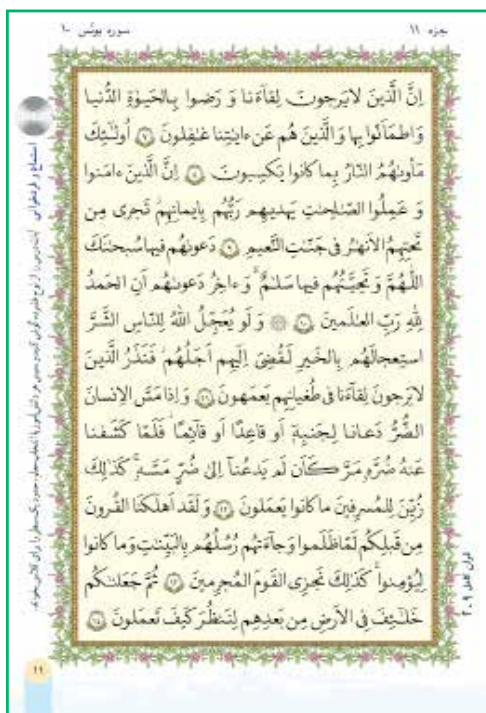 جزء ۱۱
سوره یونس ۱۰
اِنَّ الَّذینَ لایَرجونَ لِقآءَنا وَ رَضوا بِالحَیوٰةِ الدُّنیا
وَ اطمَاَنّوا بِها وَ الَّذینَ هُم عَن ءایٰتِنا غٰفِلونَ ۷ اُولٰئِكَ
مَأوٰىهُمُ النّارُ بِما كانوا یَكسِبونَ ۸ اِنَّ الَّذینَ ءامَنوا
وَ عَمِلُوا الصّٰلِحٰتِ یَهدیهِم رَبُّهُم بِایمانِهِم تَجری مِن
تَحتِهِمُ الاَنهٰرُ فی جَنّٰتِ النَّعیمِ ۹ دَعوٰىهُم فیها سُبحٰنَكَ
اللّٰهُمَّ وَ تَحِیَّتُهُم فیها سَلٰمٌ وَ ءاخِرُ دَعوٰىهُم اَنِ الحَمدُ
لِلّٰهِ رَبِّ العٰلَمینَ ۱۰ وَ لَو یُعَجِّلُ اللّٰهُ لِلنّاسِ الشَّرَّ
استِعجالَهُم بِالخَیرِ لَقُضِیَ اِلَیهِم اَجَلُهُم فَنَذَرُ الَّذینَ
لایَرجونَ لِقآءَنا فی طُغیانِهِم یَعمَهونَ ۱۱ وَ اِذا مَسَّ الاِنسانَ
الضُّرُّ دَعانا لِجَنبِهٖ اَو قاعِدًا اَو قآئِمًا فَلَمّا كَشَفنا
عَنهُ ضُرَّهٗ مَرَّ كَاَن لَم یَدعُنآ اِلیٰ ضُرٍّ مَسَّهٗ كَذٰلِكَ
زُیِّنَ لِلمُسرِفینَ ما كانوا یَعمَلونَ ۱۲ وَ لَقَد اَهلَكنَا القُرونَ
مِن قَبلِكُم لَمّا ظَلَموا وَ جآءَتهُم رُسُلُهُم بِالبَیِّنٰتِ وَ ما كانوا
لِیُؤمِنوا كَذٰلِكَ نَجزِی القَومَ المُجرِمینَ ۱۳ ثُمَّ جَعَلنٰكُم
خَلٰٓئِفَ فِی الاَرضِ مِن بَعدِهِم لِنَنظُرَ كَیفَ تَعمَلونَ ۱۴
استماع و فراخوانی
قرآن کامل ۲۰۹
۱۱